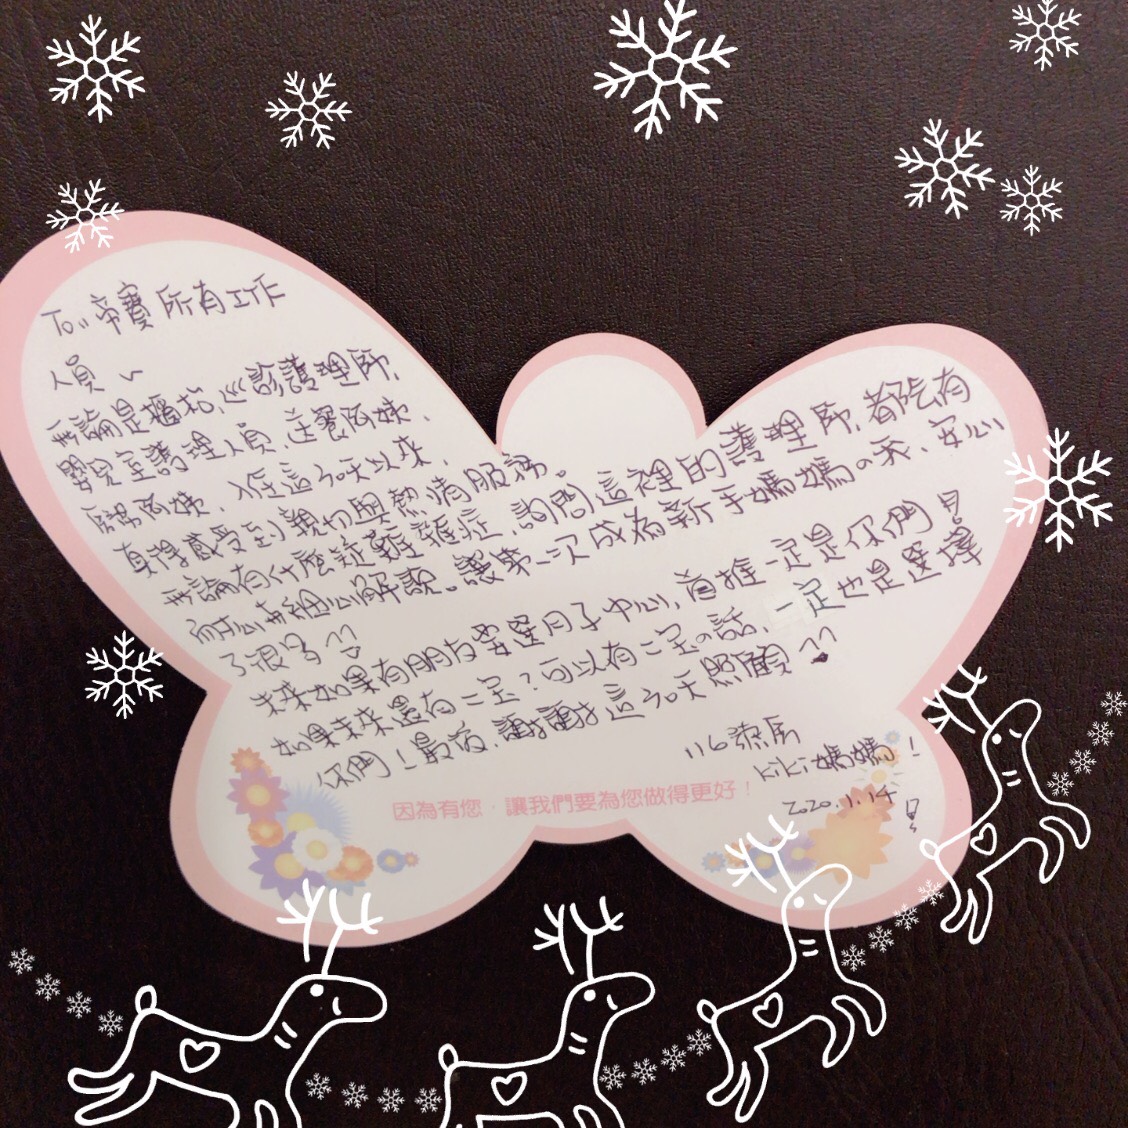 To:, 帝寶所有工作
人員~
無論是櫃枱、巡診護理師、
嬰兒室護理人員、送餐阿姨、
房務阿姨、入住這30天以來，
真得感受到親切與熱情服務。
無論有什麼疑難雜症，詢問這裡的護理師，都能有
耐心與細心解說。讓第一次成為新手媽媽の我，安心
了很多^^
未來如果有朋友要選月子中心，首推一定是你們!
如果未來還有二寶？可以有二寶の話，一定也是選擇
你們！最後，謝謝這30天照顧^^
116號房
kiki媽媽！
2020.1.14
因為有您，讓我們要為您做得更好！